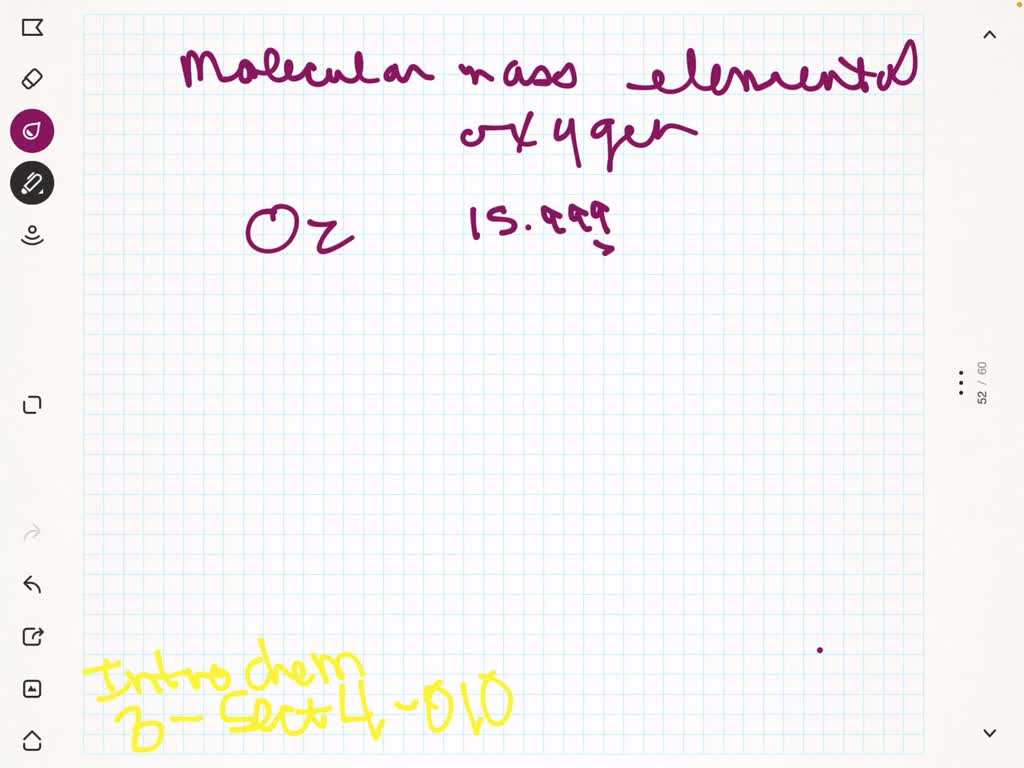 Molecular mass elemental
oxygen
O2 15.999
52 / 60
Intro chem
3-Sect 4-010